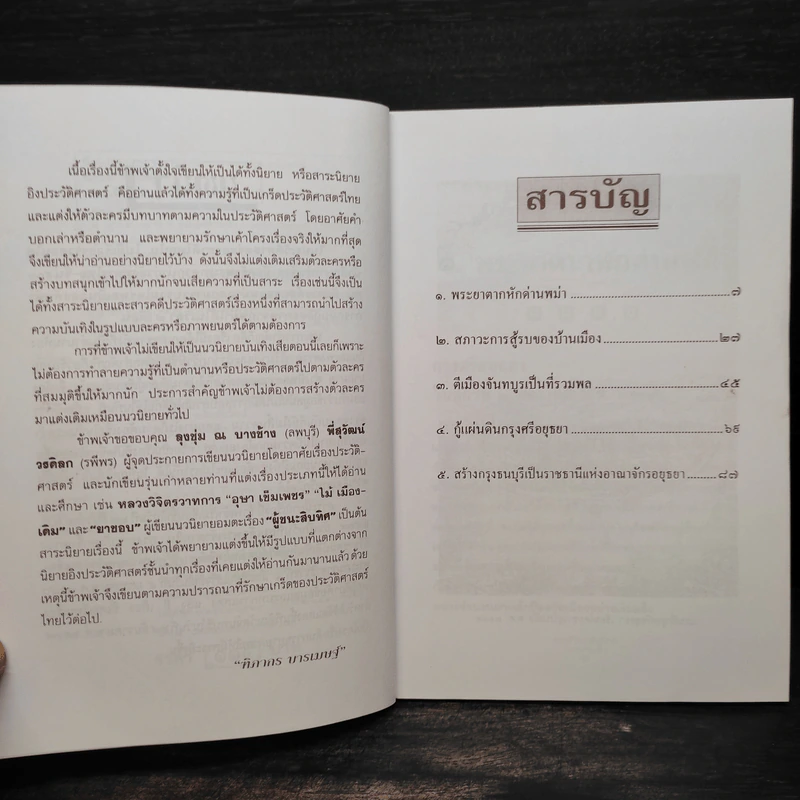 เนื้อเรื่องนี้ข้าพเจ้าตั้งใจเขียนให้เป็นได้ทั้งนิยาย หรือสาระนิยาย
อิงประวัติศาสตร์ คืออ่านแล้วได้ทั้งความรู้ที่เป็นเกร็ดประวัติศาสตร์ไทย
และแต่งให้ตัวละครมีบทบาทตามความในประวัติศาสตร์ โดยอาศัยคำ
บอกเล่าหรือตำนาน และพยายามรักษาเค้าโครงเรื่องจริงให้มากที่สุด
จึงเขียนให้น่าอ่านอย่างนิยายไว้บ้าง ดังนั้นจึงไม่แต่งเติมเสริมตัวละครหรือ
สร้างบทสนุกเข้าไปให้มากนักจนเสียความที่เป็นสาระ เรื่องเช่นนี้จึงเป็น
ได้ทั้งสาระนิยายและสารคดีประวัติศาสตร์เรื่องหนึ่งที่สามารถนำไปสร้าง
ความบันเทิงในรูปแบบละครหรือภาพยนตร์ได้ตามต้องการ
การที่ข้าพเจ้าไม่เขียนให้เป็นนวนิยายบันเทิงเสียตอนนี้เลยก็เพราะ
ไม่ต้องการทำลายความรู้ที่เป็นตำนานหรือประวัติศาสตร์ไปตามตัวละคร
ที่สมมุติขึ้นให้มากนัก ประการสำคัญข้าพเจ้าไม่ต้องการสร้างตัวละคร
มาแต่งเติมเหมือนนวนิยายทั่วไป
ข้าพเจ้าขอขอบคุณ ลุงชุ่ม ณ บางช้าง (ลพบุรี) พี่สุวัฒน์
วรดิลก (รพีพร) ผู้จุดประกายการเขียนนวนิยายโดยอาศัยเรื่องประวัติ-
ศาสตร์ และนักเขียนรุ่นเก่าหลายท่านที่แต่งเรื่องประเภทนี้ให้ได้อ่าน
และศึกษา เช่น หลวงวิจิตรวาทการ "อุษา เข็มเพชร" "ไม้ เมือง-
เดิม" และ "ยาขอบ" ผู้เขียนนวนิยายอมตะเรื่อง "ผู้ชนะสิบทิศ" เป็นต้น
สาระนิยายเรื่องนี้ ข้าพเจ้าได้พยายามแต่งขึ้นให้มีรูปแบบที่แตกต่างจาก
นิยายอิงประวัติศาสตร์ชั้นนำทุกเรื่องที่เคยแต่งให้อ่านกันมานานแล้ว ด้วย
เหตุนี้ข้าพเจ้าจึงเขียนตามความปรารถนาที่รักษาเกร็ดของประวัติศาสตร์
ไทยไว้ต่อไป.
"ทิภากร บารเมษฐ์"
สารบัญ
๑. พระยาตากหักด่านพม่า ........................................๗
๒. สภาวะการสู้รบของบ้านเมือง..............................๒๗
๓. ตีเมืองจันทบูรเป็นที่รวมพล ................................๔๕
๔. กู้แผ่นดินกรุงศรีอยุธยา ......................................๖๙
๕. สร้างกรุงธนบุรีเป็นราชธานีแห่งอาณาจักรอยุธยา ........๘๗